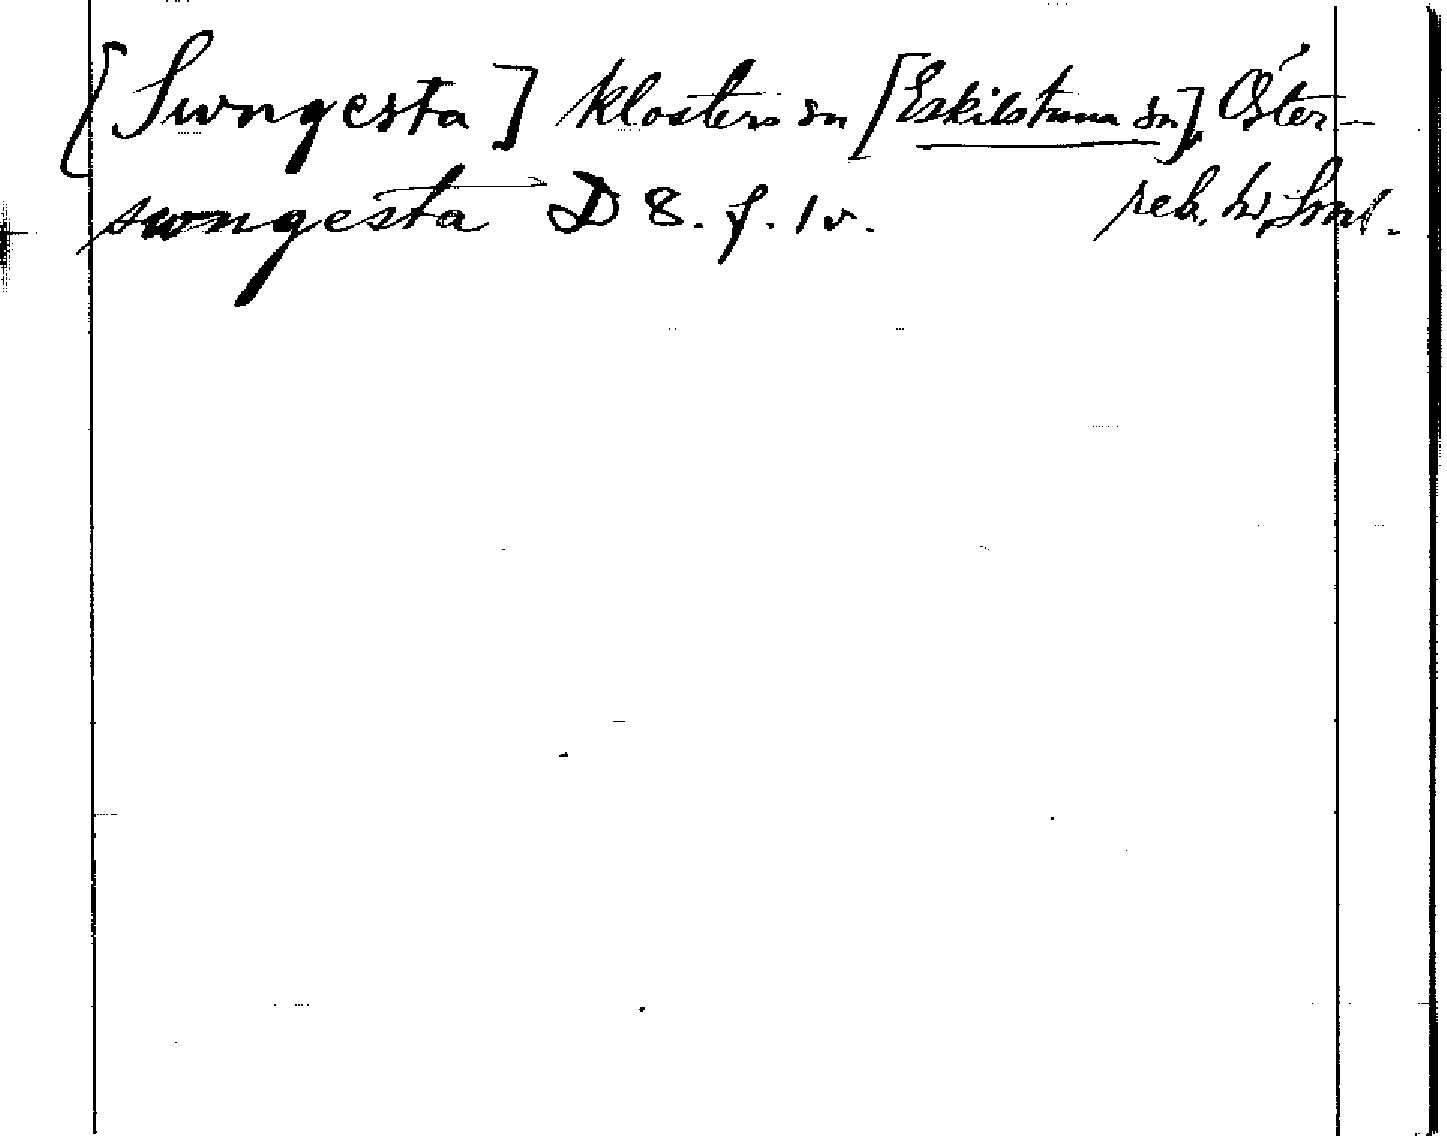 [Swngesta] klosters sn [Eskilstuna sn], Öster-
swngesta D 8. f. 1 v. rek. hd, Srml.